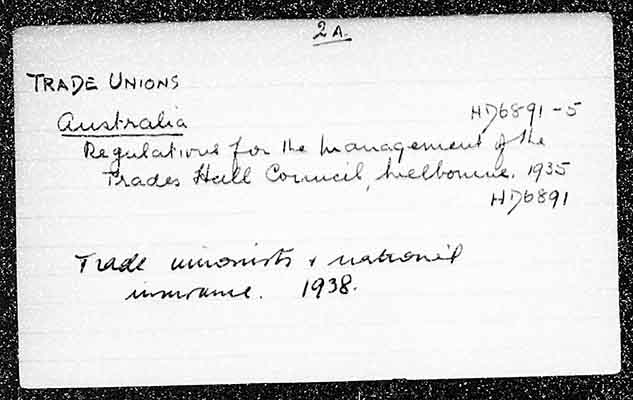 2A.
TRADE UNIONS
Australia
HD6891-5
Regulations for the management of the
Trades Hall Council, Melbourne. 1935
HD6891
Trade unionists & national
insurance. 1938.